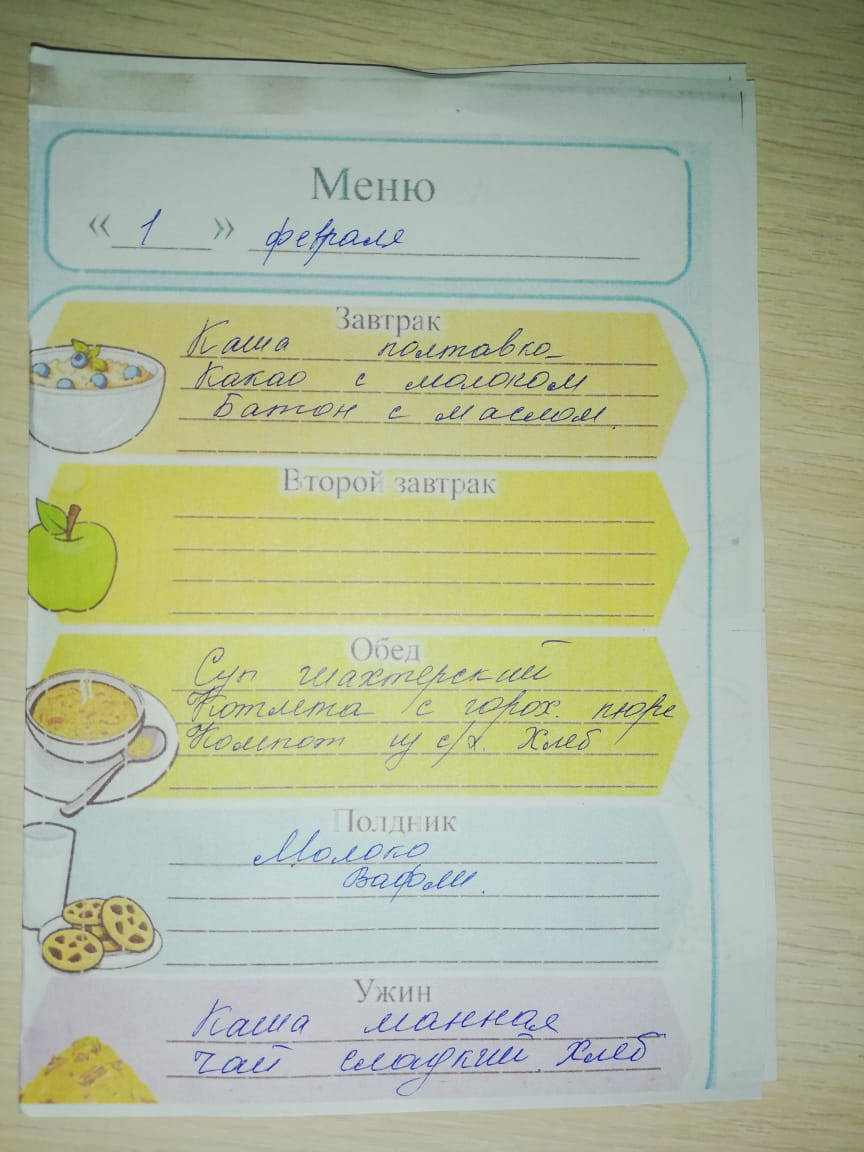 Меню
« 1 » февраля
Завтрак
Каша полтавко
Какао с молоком
Батон с маслом.
Второй завтрак
Обед
Суп шахтерский
Котлета с горох. пюре
Компот из с/х. Хлеб
Полдник
Молоко
Вафли.
Ужин
Каша манная
Чай сладкий. Хлеб